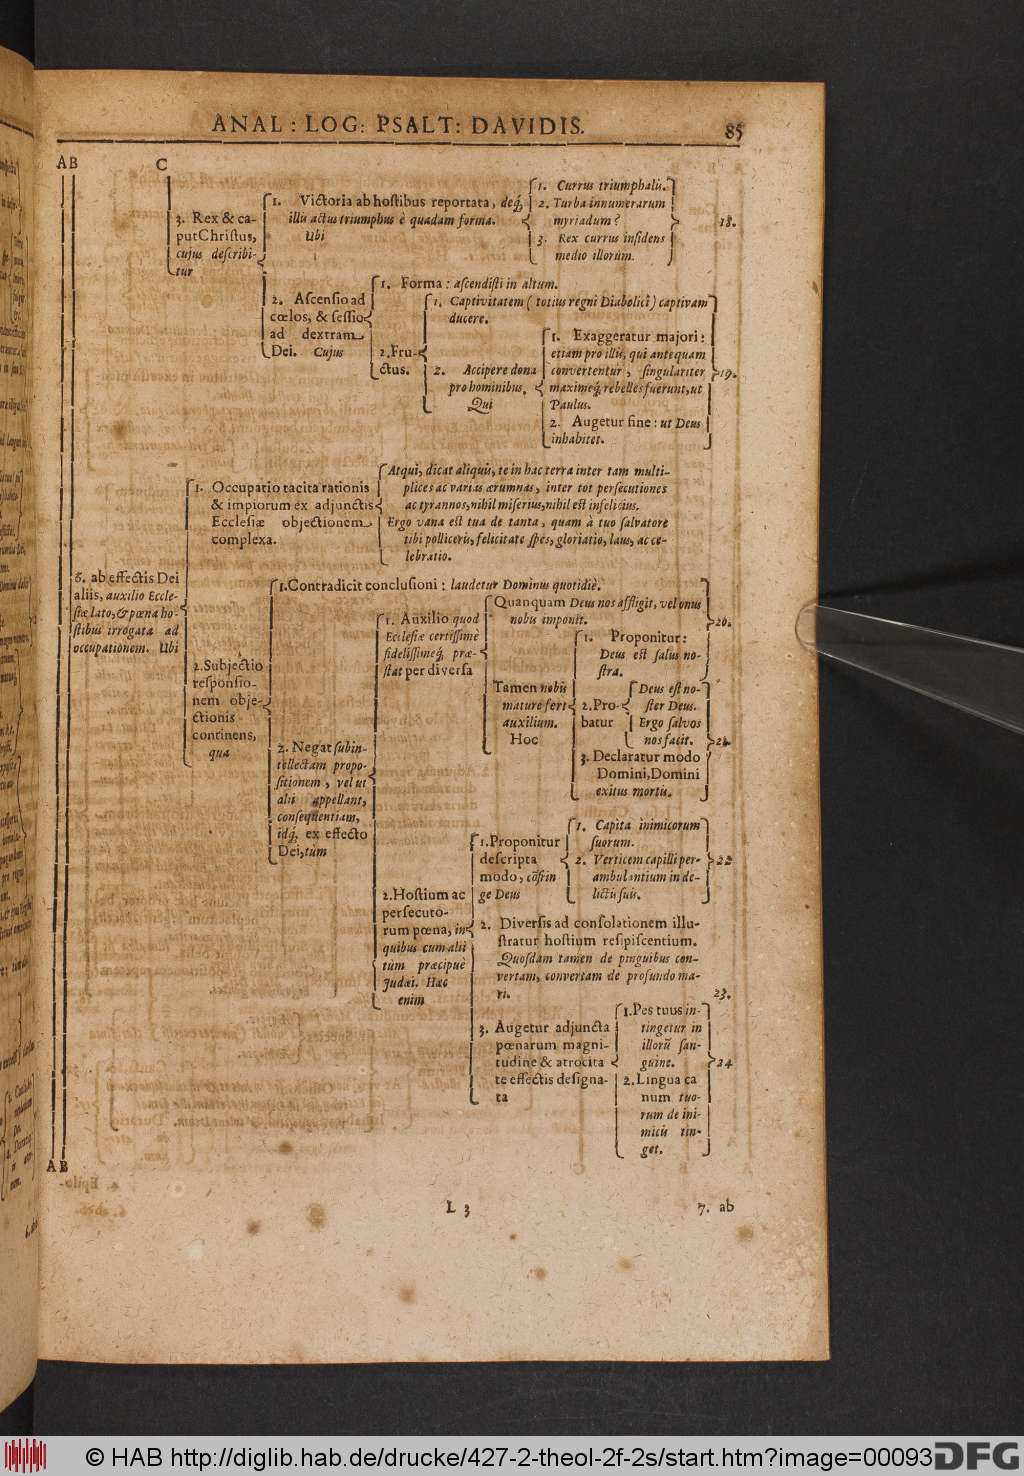 ANAL : LOG: PSALT: DAVIDIS.
85
AB
C
3. Rex & ca-
put Christus,
cujus describi-
tur
1. Victoria ab hostibus reportata, deq́,
illis actus triumphus è quadam forma.
Ubi
1. Currus triumphalis.
2. Turba innumerarum
myriadum?
3. Rex currus insidens
medio illorum.
18.
2. Ascensio ad
cœlos, & sessio
ad dextram
Dei. Cujus
1. Forma: ascendisti in altum.
2. Fru-
ctus.
1. Captivitatem ( totius regni Diabolici ) captivam
ducere.
2. Accipere dona
pro hominibus.
Qui
1. Exaggeratur majori:
etiam pro illis, qui antequam
convertentur, singulariter
maximeq́, rebelles fuerunt, ut
Paulus.
2. Augetur fine: ut Deus
inhabitet.
19.
6. ab effectis Dei
aliis, auxilio Eccle-
siæ lato, & pœna ho-
stibus irrogata ad
occupationem. Ubi
1. Occupatio tacita rationis
& impiorum ex adjunctis
Ecclesiæ objectionem
complexa.
Atqui, dicat aliquis, te in hac terra inter tam multi-
plices ac varias ærumnas, inter tot persecutiones
ac tyrannos, nihil miserius, nihil est infelicius.
Ergo vana est tua de tanta, quam à tuo salvatore
tibi polliceris, felicitate spes, gloriatio, laus, ac ce-
lebratio.
2. Subjectio
responsio-
nem obje-
ctionis
continens,
qua
1. Contradicit conclusioni: laudetur Dominus quotidiè.
2. Negat subin-
tellectam propo-
sitionem, vel ut
alii appellant,
consequentiam,
idq́, ex effecto
Dei, tùm
1. Auxilio quod
Ecclesiæ certissimè
fidelissimeq́, præ-
stat per diversa
Quanquam Deus nos affligit, vel onus
nobis imponit.
20.
Tamen nobis
mature fert
auxilium.
Hoc
1. Proponitur:
Deus est salus no-
stra.
2. Pro-
batur
Deus est no-
ster Deus.
Ergo salvos
nos facit.
21.
3. Declaratur modo
Domini, Domini
exitus mortis.
2. Hostium ac
persecuto-
rum pœna, in
quibus cum alii
tùm præcipuè
Judæi. Hæc
enim
1. Proponitur
descripta
modo, cōfrin
ge Deus
1. Capita inimicorum
suorum.
2. Verticem capilli per-
ambulantium in de-
lictis suis.
22
2. Diversis ad consolationem illu-
stratur hostium resipiscentium.
Quosdam tamen de pinguibus con-
vertam, convertam de profundo ma-
ri.
23.
3. Augetur adjuncta
pœnarum magni-
tudine & atrocita
te effectis designa-
ta
1. Pes tuus in-
tingetur in
illorū san-
guine.
2. Lingua ca
num tuo-
rum de ini-
micis tin-
get.
24
AB
L 3
7. ab
© HAB http://diglib.hab.de/drucke/427-2-theol-2f-2s/start.htm?image=00093
DFG